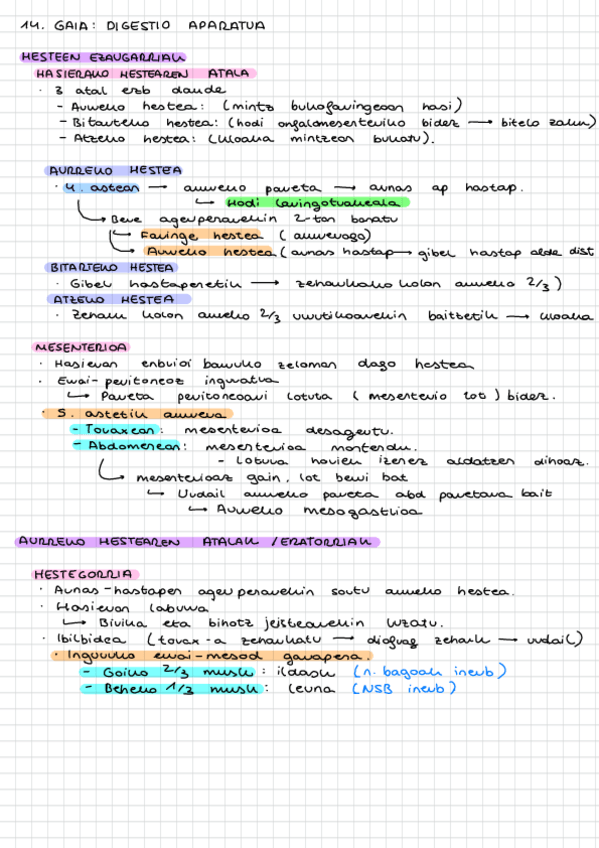 14. GAIA: DIGESTIO APARATUA
HESTEEN EZAUGARRIAK
HASIERAKO HESTEAREN ATALA
· 3 atal ezb daude
- Aurreko hestea: (mintz bukofaringeoan hasi)
- Bitarteko hestea: (hodi onfalomesenteriko bidez → bitelo zaku)
- Atzeko hestea: (kloaka mintzean bukatu).
AURREKO HESTEA
· 4. astean → aurreko pareta → arnas ap hastap.
↳ Hodi laringotrakeala
↳ Bere agerpenarekin 2-tan banatu
↳ Faringe hestea (aurrerago)
↳ Aurreko hestea (arnas hastap → gibel hastap alde dist
BITARTEKO HESTEA
· Gibel hastapenetik → zeharkako kolon aurreko 2/3)
ATZEKO HESTEA
· Zehark kolon aurreko 2/3 urrutikoarekin baitbetik → kloaka
MESENTERIOA
· Hasieran enbrioi barruko zeloman dago hestea
· Errai-peritoneoz inguratua
↳ Pareta peritoneoari lotuta (mesenterio lot) bidez.
· 5. astetik aurrera
- Toraxean: mesenterioa desagertu.
- Abdomenean: mesenterioa mantendu.
- Lotura horien izenez aldatzen dihoaz.
↳ mesenterioaz gain, lot berri bat
↳ Urdail aurreko pareta abd paretara bait
↳ Aurreko mesogastrioa
AURREKO HESTEAREN ATALAK / ERATORRIAK
HESTEGORRIA
· Arnas-hastapen agerpenarekin sortu aurreko hestea.
· Hasieran laburra
↳ Birika eta bihotz jeisterarekin luzatu.
· Ibilbidea (torax-a zeharkatu → diafrag zehark → urdail)
· Inguruko errai-mesod garapena.
- Goiko 2/3 musk: ildask (n. bagoak inerb)
- Beheko 1/3 musk: leuna (NSB inerb)